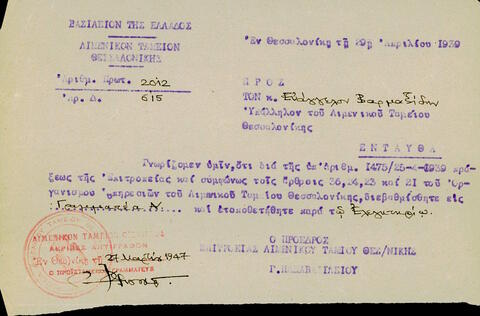 ΒΑΣΙΛΕΙΟΝ ΤΗΣ ΕΛΛΑΔΟΣ
ΛΙΜΕΝΙΚΟΝ ΤΑΜΕΙΟΝ
ΘΕΣΣΑΛΟΝΙΚΗΣ
Ἀριθμ. Πρωτ. 2012
Ἀρ. Δ. 615
Ἐν Θεσσαλονίκῃ τῇ 29ῃ Ἀπριλίου 1939
ΠΡΟΣ
ΤΟΝ κ. Εὐάγγελον Βαρμαξίδην
Ὑπάλληλον τοῦ Λιμενικοῦ Ταμείου
Θεσσαλονίκης
ΕΝΤΑΥΘΑ
Γνωρίζομεν ὑμῖν, ὅτι διά τῆς ὑπ' ἀριθμ. 1475/25-4-1939 πρά-
ξεως τῆς Ἐπιτροπείας καί συμφώνως τοῖς ἄρθροις 36, 14, 23 καί 21 τοῦ Ὀρ-
γανισμοῦ Ὑπηρεσιῶν τοῦ Λιμενικοῦ Ταμείου Θεσσαλονίκης, διεβαθμίσθητε εἰς
Γραμματέα Α. καί ἐτοποθετήθητε παρά τῷ
Ο ΠΡΟΕΔΡΟΣ
ΕΠΙΤΡΟΠΕΙΑΣ ΛΙΜΕΝΙΚΟΥ ΤΑΜΕΙΟΥ ΘΕΣ/ΝΙΚΗΣ
ΛΙΜΕΝΙΚΟΝ ΤΑΜΕΙΟΝ
ΑΚΡΙΒΕΣ ΑΝΤΙΓΡΑΦΟΝ
Ἐν Θεσ/νίκῃ τῇ 27 Μαρτίου 1947